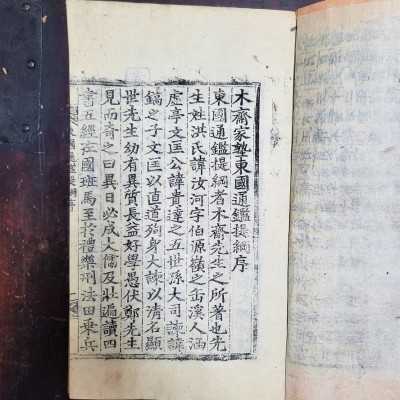 木齋家塾東國通鑑提綱序
東國通鑑提綱者木齋先生之所著也先
生姓洪氏諱汝河字伯源嶺之缶溪人涵
虛亭文匡公諱貴達之五世孫大司諫諱
鎬之子文匡以直道殉身大諫以清名顯
世先生幼有異質長益好學愚伏鄭先生
見而奇之曰異日必成大儒及壯遍讀四
書五經左國班馬至於禮樂刑法田乘兵